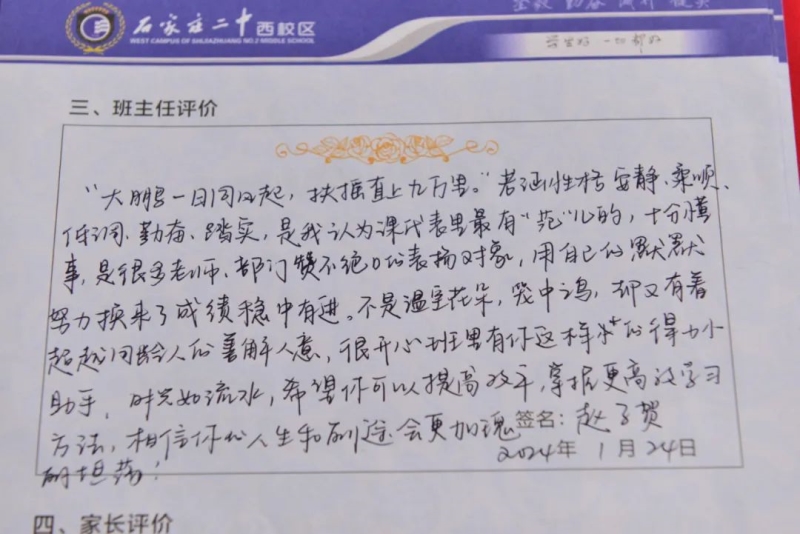 全效 勤奋
石家庄二十西校区
WEST CAMPUS OF SHIJIAZHUANG NO.2 MIDDLE SCHOOL
学生好 一切都好
三、班主任评价
“大鹏一日同风起，扶摇直上九万里。”若涵性格安静、乘顺、
低调、勤奋、踏实，是我认为课代表里最有“范”儿的，十分懂
事，是很多老师、部门赞不绝口的表扬对象，用自己的默默
努力换来了成绩稳中有进。不是温室花朵，笼中鸟，却又有着
超越同龄人的善解人意，很开心班里有你这样的得力小
助手，时光如流水，希望你可以提高效率，掌握更高效学习
方法，相信你的人生和前途会更加瑰
丽坦荡！
签名：赵子贺
2024年 1月24日
四、家长评价